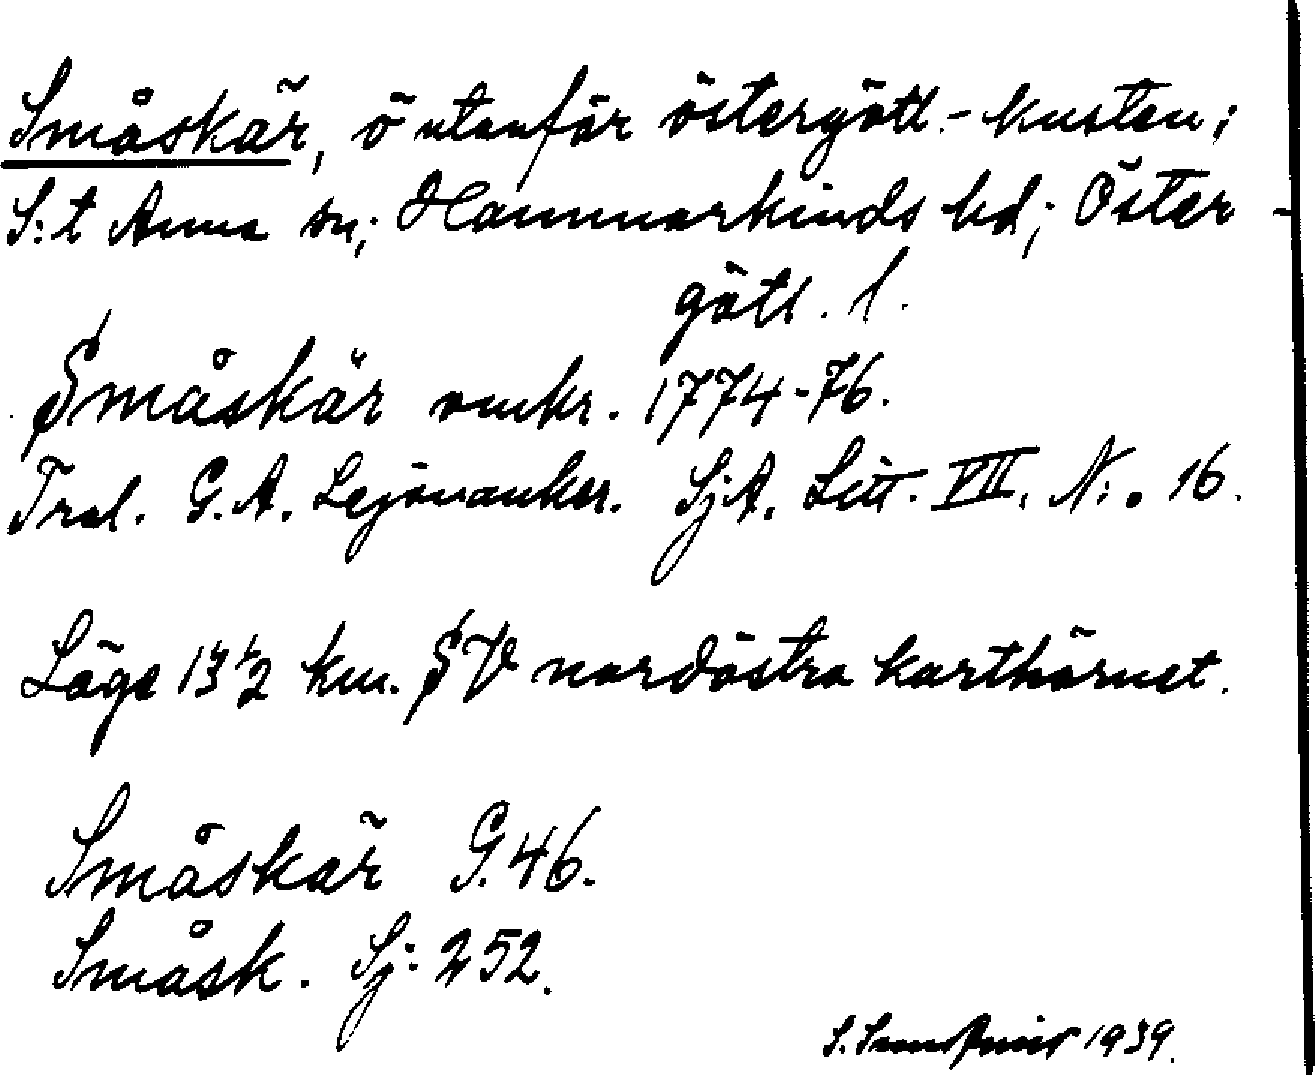 Småskär, ö utanför östergötl.- kusten;
S:t Anna sn; Hammarkinds hd; Öster-
götl. l.
Småskär omkr. 1774-76.
Trol. G. A. Lejonanker. SjA. Litt. VII. N:o 16.
Läge 13 1/2 km. SV nordöstra karthörnet.
Småskär G. 46.
Småsk. Sj: 252.
S. 1939.